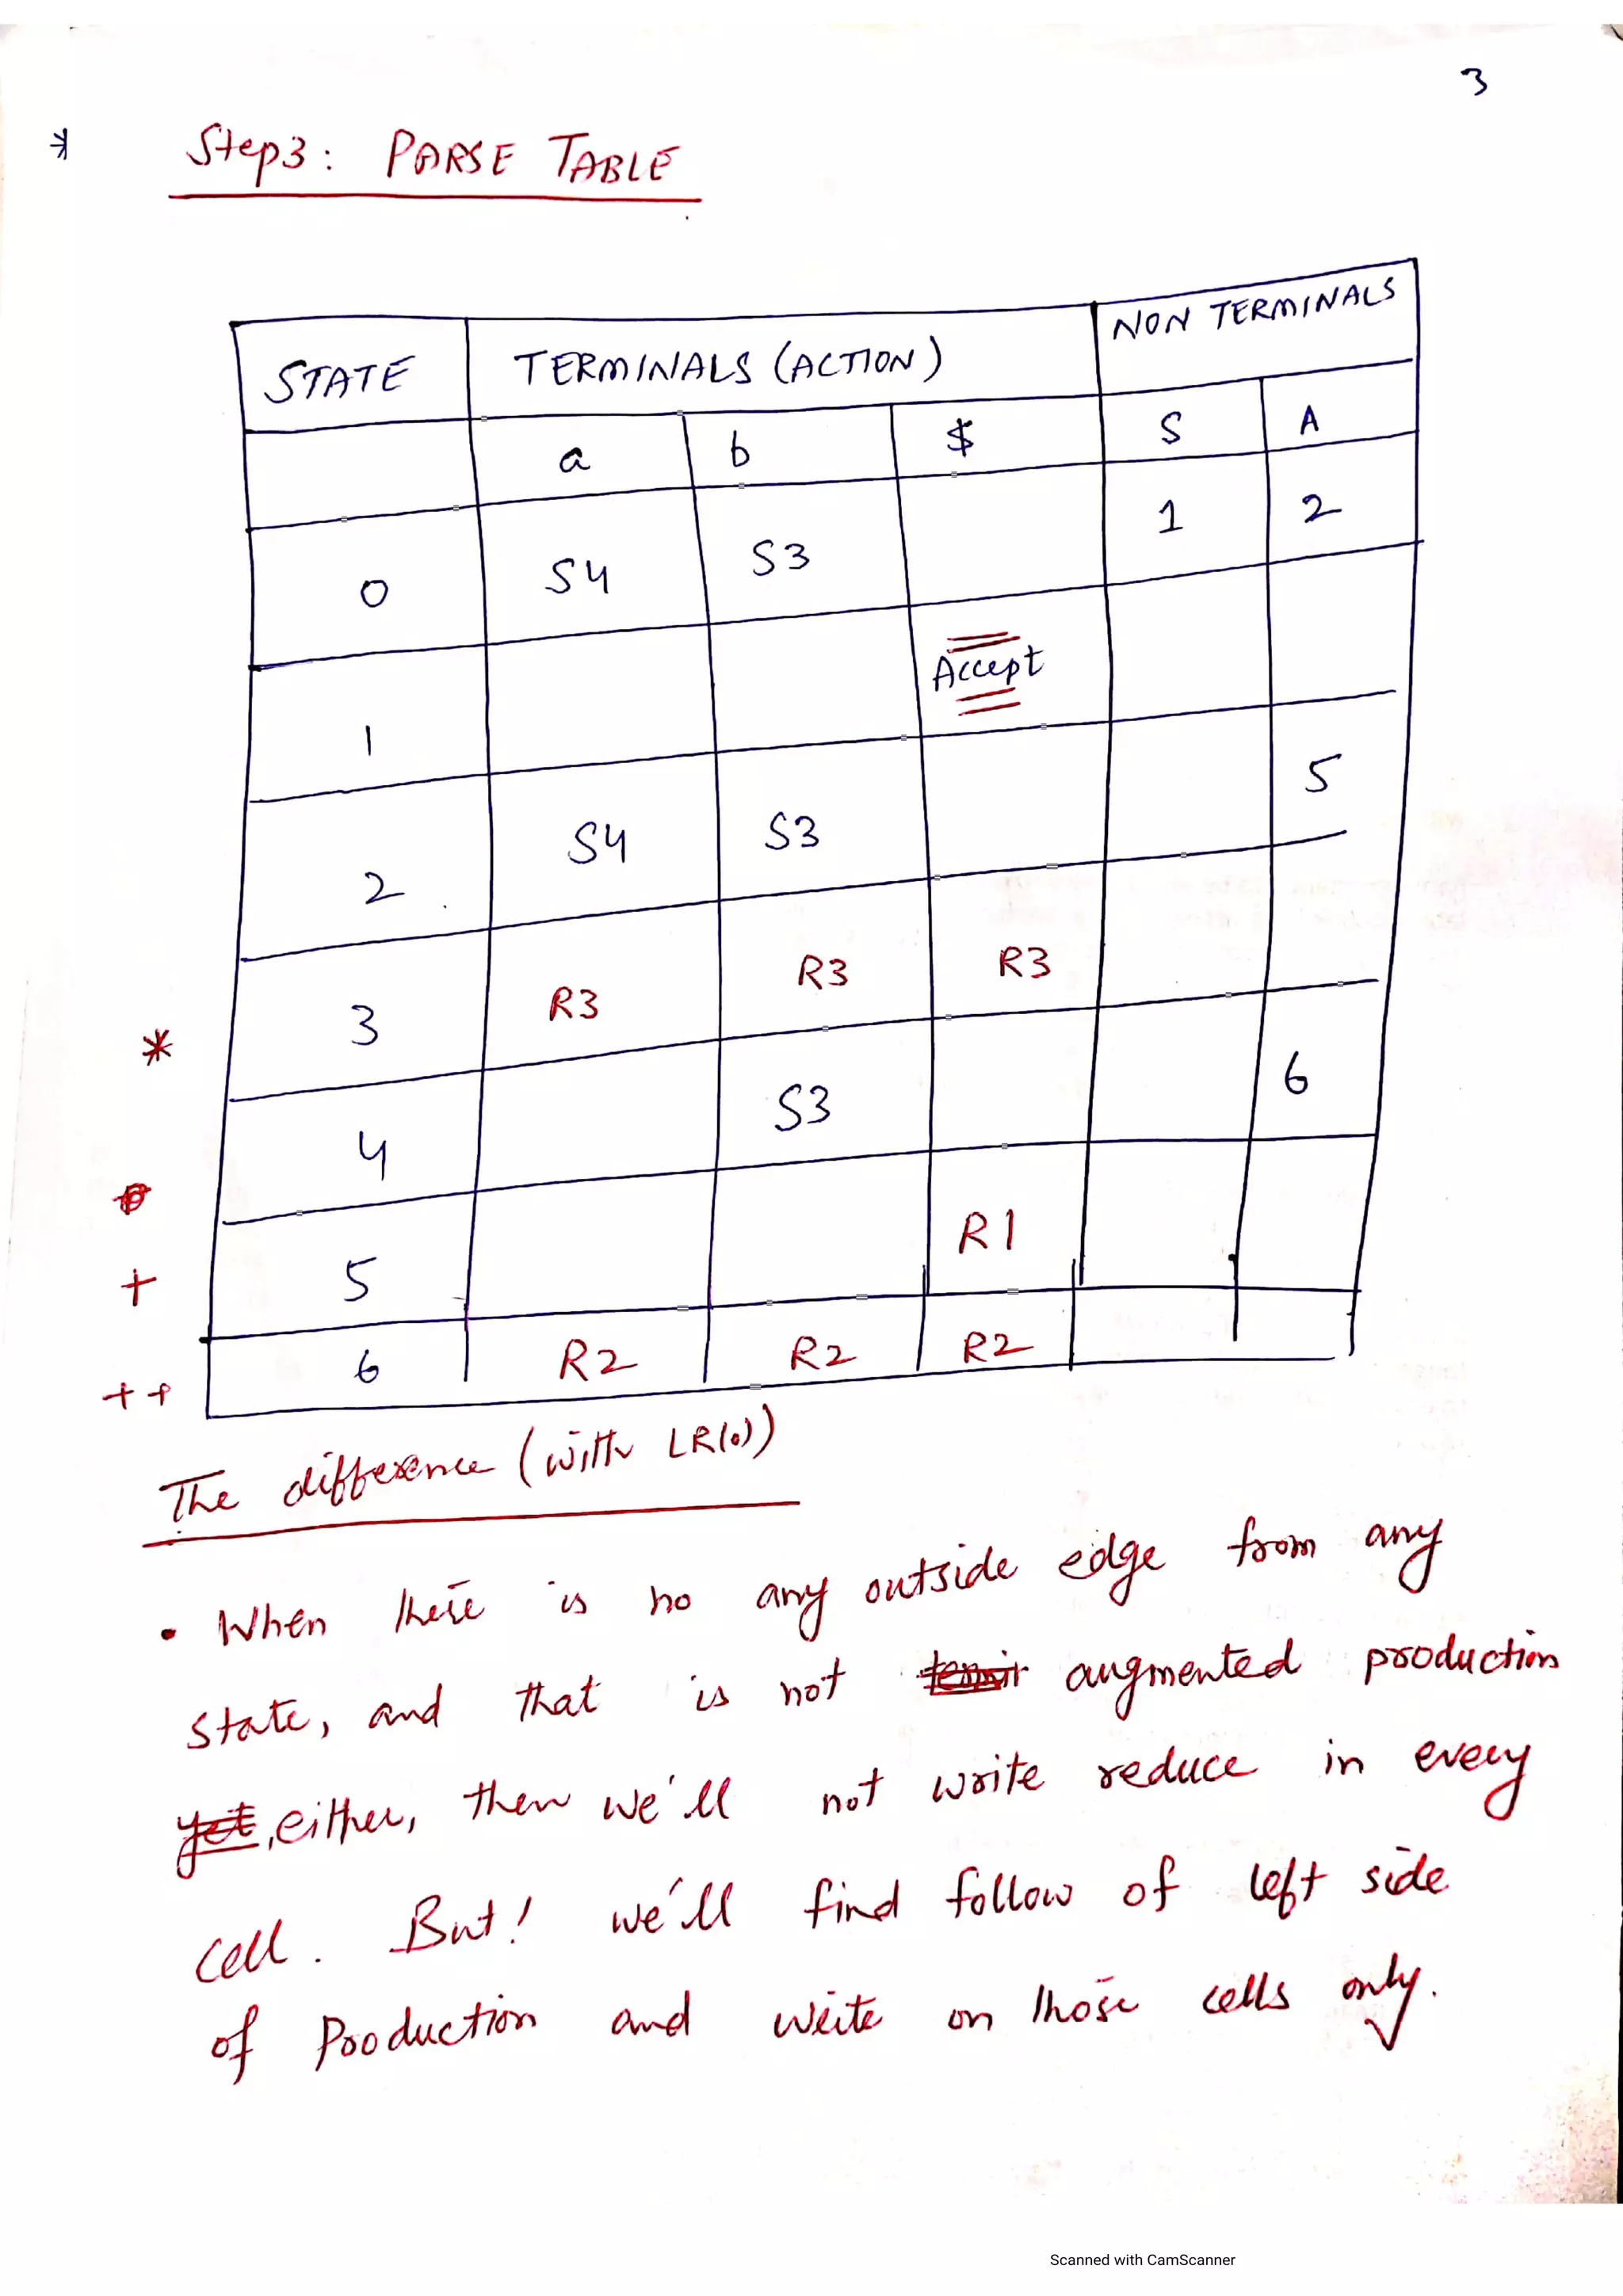 3
* Step3: PARSE TABLE
STATE TERMINALS (ACTION) NON TERMINALS
a b $ S A
0 S4 S3 1 2
1 Accept
2 S4 S3 5
* 3 R3 R3 R3
4 S3 6
+ 5 R1
++ 6 R2 R2 R2
The difference (with LR(0))
• When there is no any outside edge from any
state, and that is not augmented production
yet, either, then we'll not write reduce in every
cell. But! we'll find follow of left side
of Production and write on those cells only.
Scanned with CamScanner